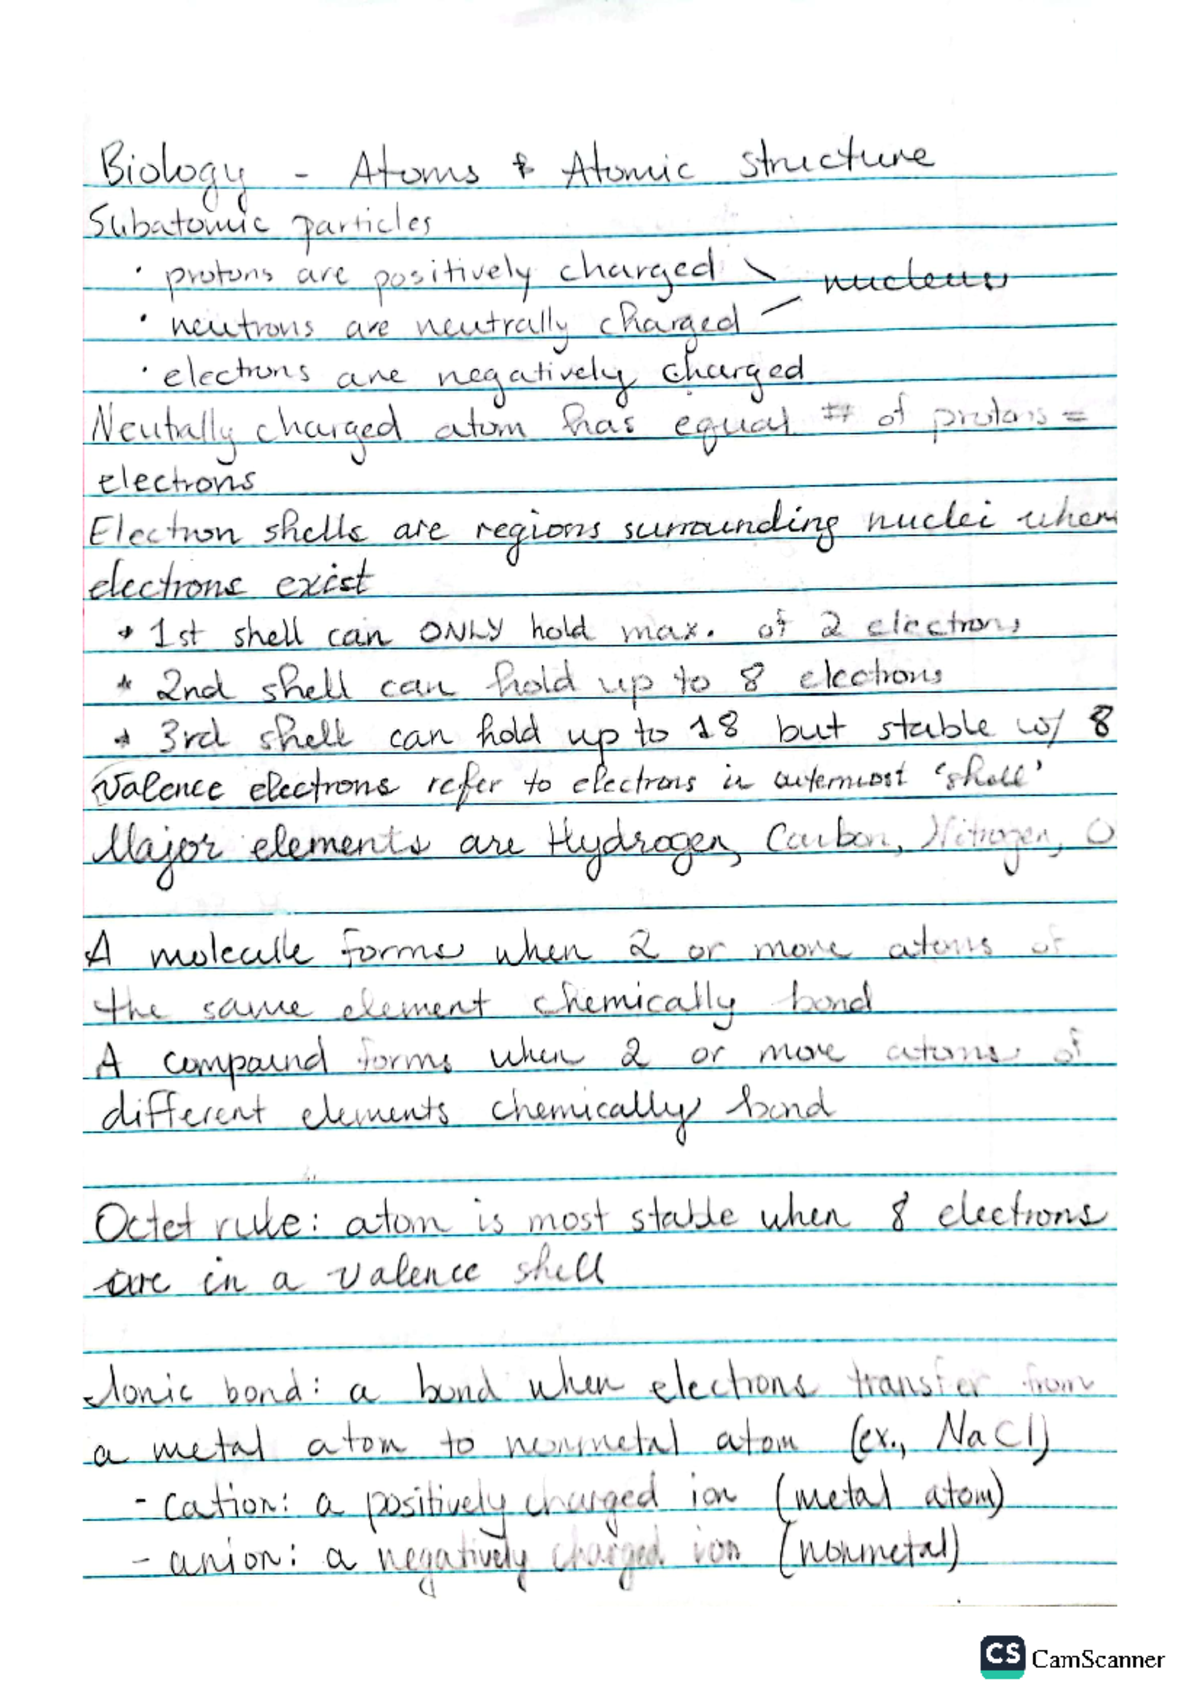 Biology - Atoms & Atomic structure
Subatomic particles
· protons are positively charged \ nucleus
· neutrons are neutrally charged /
· electrons are negatively charged
Neutrally charged atom has equal # of protons =
electrons
Electron shells are regions surrounding nuclei when
electrons exist
* 1st shell can ONLY hold max. of 2 electrons
* 2nd shell can hold up to 8 electrons
* 3rd shell can hold up to 18 but stable w/ 8
Valence electrons refer to electrons in outermost 'shell'
Major elements are Hydrogen, Carbon, Nitrogen, O
A molecule forms when 2 or more atoms of
the same element chemically bond
A compound forms when 2 or more atoms of
different elements chemically bond
Octet rule: atom is most stable when 8 electrons
are in a valence shell
Ionic bond: a bond when electrons transfer from
a metal atom to nonmetal atom (ex., NaCl)
- cation: a positively charged ion (metal atom)
- anion: a negatively charged ion (nonmetal)
CS CamScanner